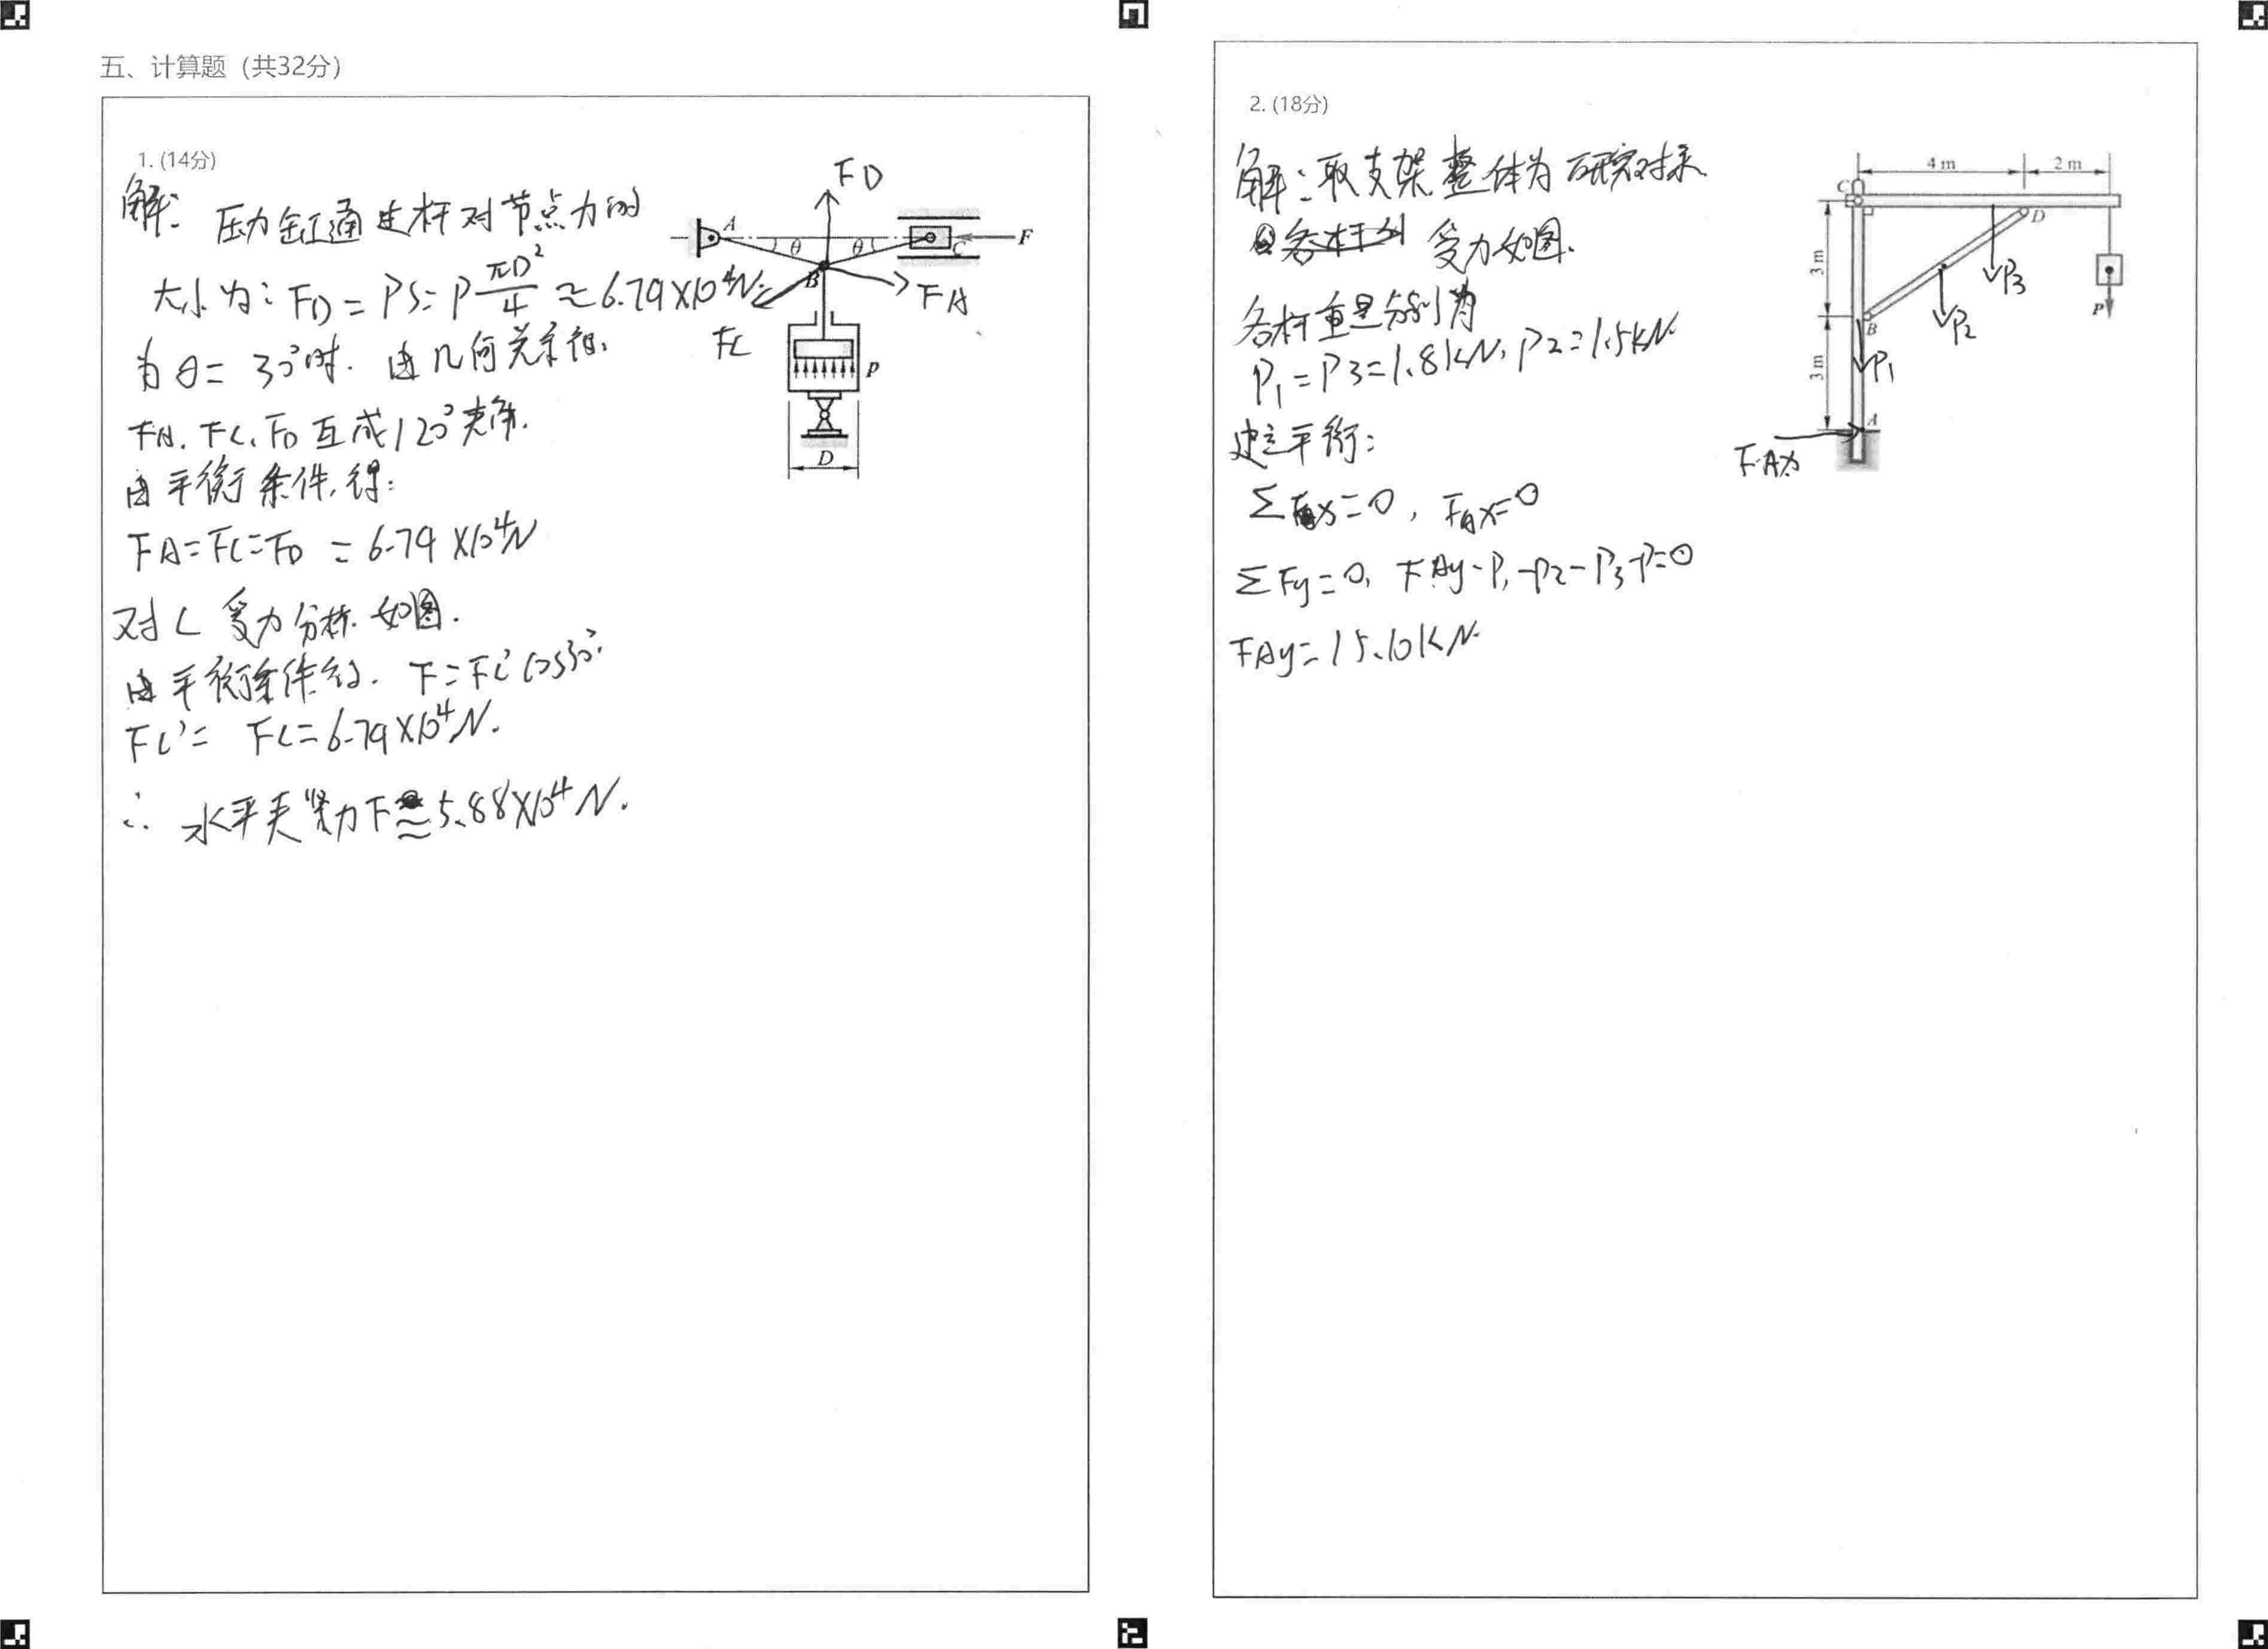 五、计算题（共32分）
1. (14分)
解: 压力缸通过杆对节点力的
大小为: FD = PS = P πD²/4 ≈ 6.79×10⁴N.
当 θ = 30°时. 由几何关系得.
FA. FC. FD 互成120°夹角.
由平衡条件, 得:
FA = FC = FD = 6.79×10⁴N
对C受力分析. 如图.
由平衡条件得. F = FC' cos30°.
FC' = FC = 6.79×10⁴N.
∴ 水平夹紧力F ≈ 5.88×10⁴N.
FD
A
θ
θ
C
F
B
FA
FC
p
D
2. (18分)
解: 取支架整体为研究对象
受力如图.
各杆重量分别为
P₁ = P3 = 1.8kN, P2 = 1.5kN.
建立平衡:
ΣFx = 0, FAx = 0
ΣFy = 0, FAy - P₁ - P2 - P3 - P = 0
FAy = 15.10kN.
4 m
2 m
C
D
3 m
P3
P2
P
B
3 m
P1
A
FAx